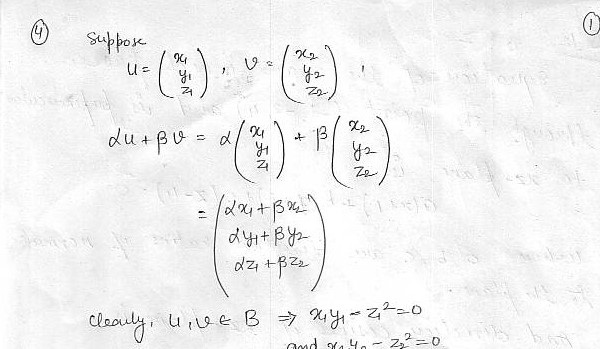 ④ ①
Suppose
u = (x₁ y₁ z₁), v = (x₂ y₂ z₂),
αu + βv = α(x₁ y₁ z₁) + β(x₂ y₂ z₂)
= (αx₁ + βx₂ αy₁ + βy₂ αz₁ + βz₂)
Clearly, u, v ∈ B ⇒ x₁y₁ - z₁² = 0
and x₂y₂ - z₂² = 0